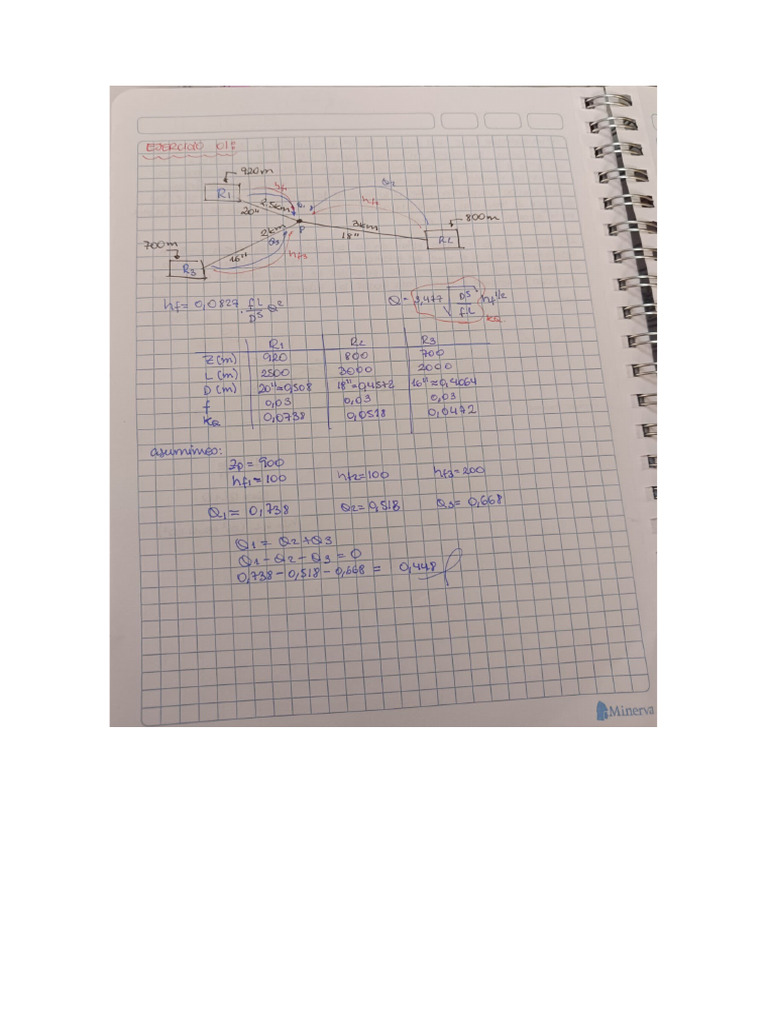 EJERCICIO 01:
920m
R1
hf1
Q1
2.5km
20"
P
Q2
hf2
3km
18"
800m
R2
700m
R3
2km
16"
Q3
hf3
hf = 0,0827 . fL/D⁵ Q²
Q = 3,477 √(D⁵/fL) hf^1/2
KQ
R1 R2 R3
Z(m) 920 800 700
L(m) 2500 3000 2000
D(m) 20"=0,508 18"=0,4572 16"=0,4064
f 0,03 0,03 0,03
KQ 0,0738 0,0518 0,0472
asumimos:
Zp = 900
hf1 = 100 hf2 = 100 hf3 = 200
Q1 = 0,738 Q2 = 0,518 Q3 = 0,668
Q1 = Q2 + Q3
Q1 - Q2 - Q3 = 0
0,738 - 0,518 - 0,668 = 0,448
Minerva